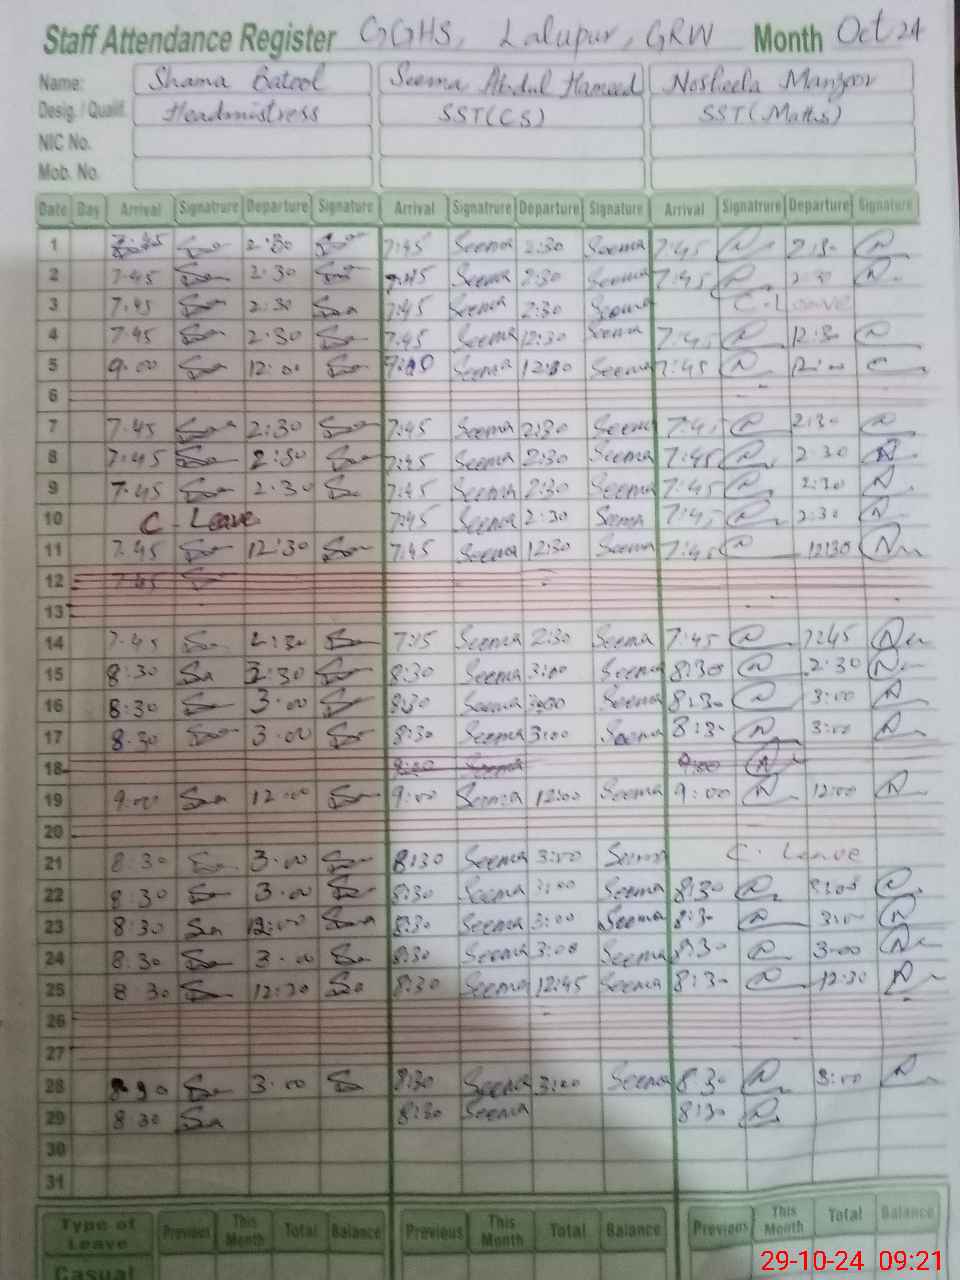 Staff Attendance Register GGHS, Lalupur, GRW Month Oct 24
Name: Shama Batool Seema Abdul Hameed Nosheela Manzoor
Desig. / Qualif. Headmistress SST(CS) SST(Maths)
NIC No.
Mob. No.
Date Day Arrival Signatrure Departure Signature Arrival Signatrure Departure Signature Arrival Signatrure Departure Signature
1 2:30 7:45 Seema 2:30 Seema 7:45 2:30
2 7:45 2:30 7:45 Seema 2:30 Seema 7:45 2:30
3 7:45 2:30 7:45 Seema 2:30 Seema C. Leave
4 7:45 2:30 7:45 Seema 12:30 Seema 7:45 12:30
5 9:00 12:00 Seema Seema 7:45 12:00
6
7 7:45 2:30 7:45 Seema 2:30 Seema 7:45 2:30
8 7:45 2:30 7:45 Seema 2:30 Seema 7:45 2:30
9 7:45 2:30 7:45 Seema 2:30 Seema 7:45 2:30
10 C. Leave 7:45 Seema 2:30 Seema 7:45 2:30
11 7:45 12:30 7:45 Seema 12:30 Seema 7:45 12:30
12 7:45
13
14 7:45 2:30 Seema 2:30 Seema 7:45
15 8:30 8:30 Seema 3:00 Seema 8:30 2:30
16 8:30 3:00 8:30 Seema 3:00 Seema 8:30 3:00
17 8:30 3:00 8:30 Seema 3:00 Seema 8:30 3:00
18 Seema 9:00
19 9:00 12:00 9:00 Seema 12:00 Seema 9:00 12:00
20
21 8:30 3:00 8:30 Seema 3:00 Seema C. Leave
22 8:30 3:00 8:30 Seema 3:00 Seema 8:30
23 8:30 12:00 8:30 Seema 3:00 Seema 8:30 3:00
24 8:30 3:00 8:30 Seema 3:00 Seema 8:30 3:00
25 8:30 12:30 8:30 Seema 12:45 Seema 8:30 12:30
26
27
28 8:30 3:00 8:30 Seema 3:00 Seema 8:30 3:00
29 8:30 8:30 Seema 8:30
30
31
Type of Leave Previous This Month Total Balance Previous This Month Total Balance Previous This Month Total Balance
Casual
29-10-24 09:21